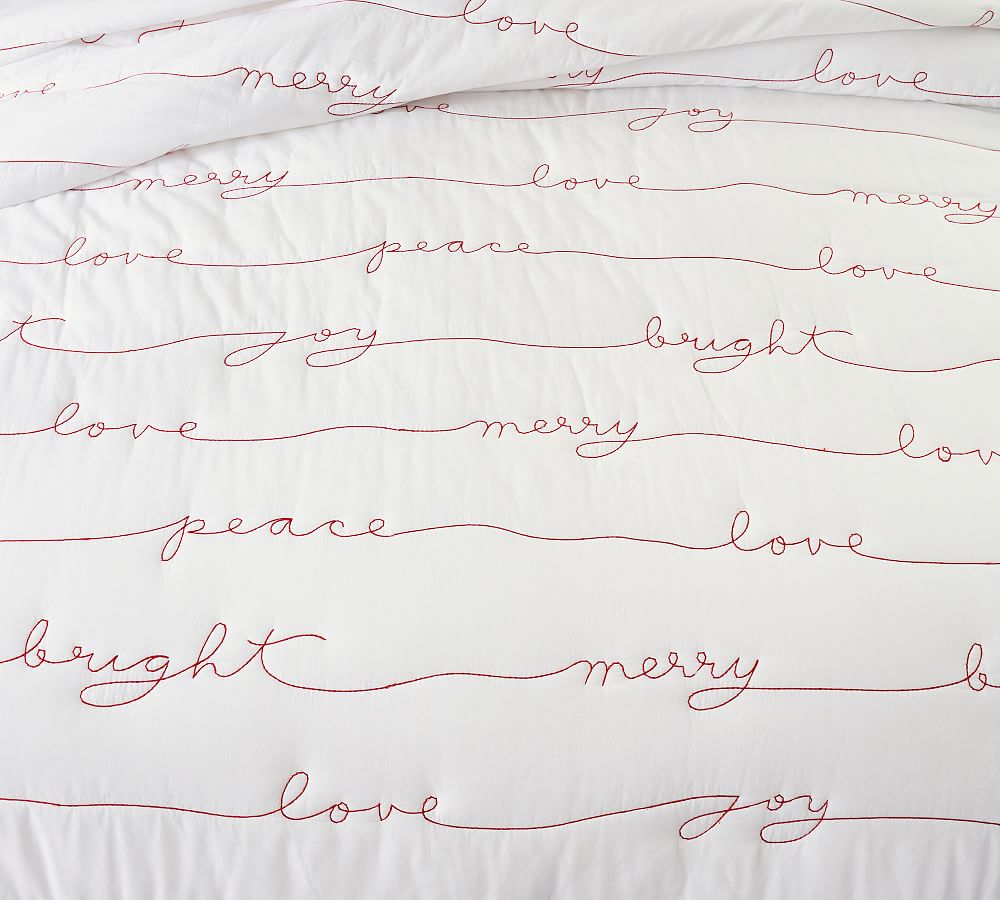 love
love
merry
joy
merry love merry
love peace love
joy bright
love merry lov
peace love
bright merry b
love joy